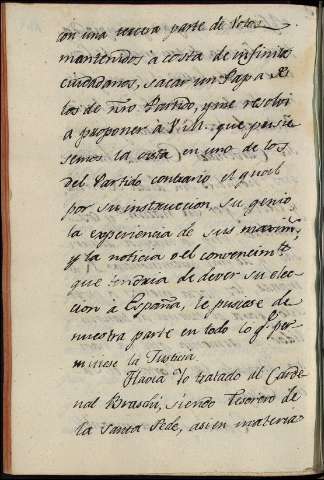 con una tercera parte de Votos
mantenidos á costa de infinitos
cuidadanos, sacar un Papa de
los de nro Partido, y me resolvi
a proponer à V.M. que pusie
semos la vista en uno de los
del Partido contrario el qual
por su instruccion su genio,
la experiencia de sus maxims
y la noticia o el convencimto
que tendria de dever su elec-
cion à España, le pusiese de
nuestra parte en todo lo qe per
mitiese la Justicia.
Havia Yo tratado al Carde
nal Braschi, siendo Tesorero de
la Santa Sede, asi en materia